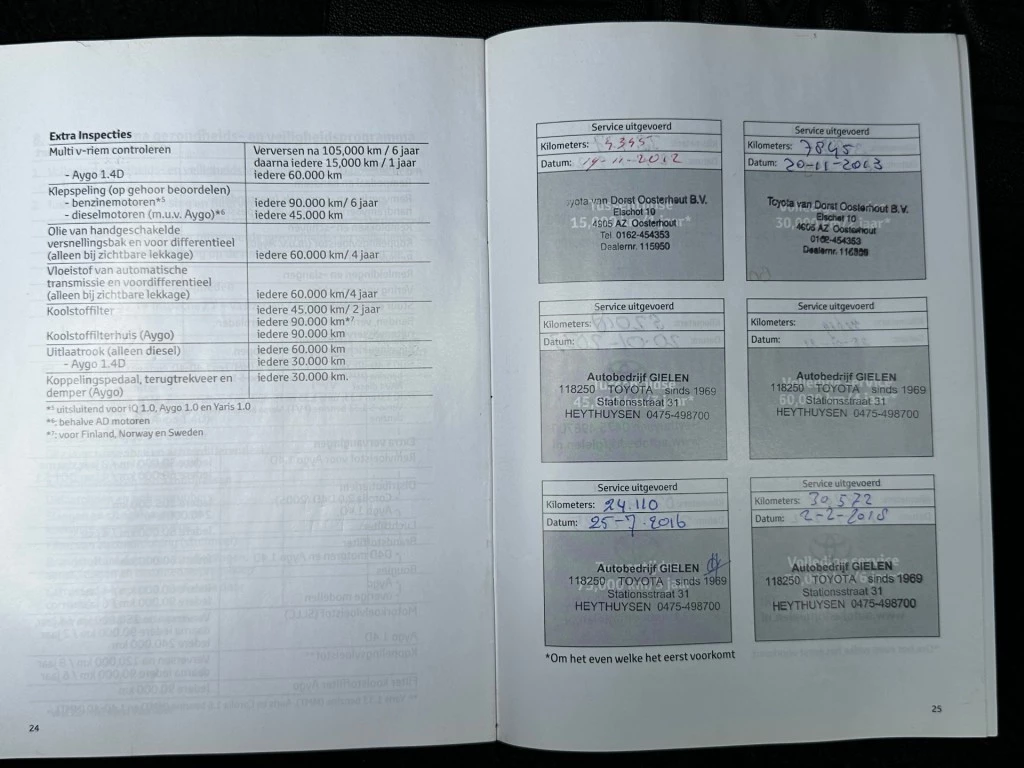 Extra Inspecties
Multi v-riem controleren Verversen na 105,000 km / 6 jaar
daarna iedere 15,000 km / 1 jaar
- Aygo 1.4D iedere 60.000 km
Klepspeling (op gehoor beoordelen)
- benzinemotoren*⁵ iedere 90.000 km/ 6 jaar
- dieselmotoren (m.u.v. Aygo)*⁶ iedere 45.000 km
Olie van handgeschakelde
versnellingsbak en voor differentieel
(alleen bij zichtbare lekkage) iedere 60.000 km/ 4 jaar
Vloeistof van automatische
transmissie en voordifferentieel
(alleen bij zichtbare lekkage) iedere 60.000 km/4 jaar
Koolstoffilter iedere 45.000 km/ 2 jaar
iedere 90.000 km*⁷
Koolstoffilterhuis (Aygo) iedere 90.000 km
Uitlaatrook (alleen diesel) iedere 60.000 km
- Aygo 1.4D iedere 30.000 km
Koppelingspedaal, terugtrekveer en iedere 30.000 km.
demper (Aygo)
*⁵ uitsluitend voor iQ 1.0, Aygo 1.0 en Yaris 1.0
*⁶: behalve AD motoren
*⁷: voor Finland, Norway en Sweden
24
Service uitgevoerd
Kilometers: 4345
Datum: 19-11-2012
Toyota van Dorst Oosterhout B.V.
Elschot 10
4905 AZ Oosterhout
Tel 0162-454353
Dealernr. 115950
Service uitgevoerd
Kilometers: 7845
Datum: 20-11-2013
Toyota van Dorst Oosterhout B.V.
Elschot 10
4905 AZ Oosterhout
0162-454353
Dealernr.
Service uitgevoerd
Kilometers:
Datum:
Autobedrijf GIELEN
118250 TOYOTA sinds 1969
Stationsstraat 31
HEYTHUYSEN 0475-498700
Service uitgevoerd
Kilometers:
Datum:
Autobedrijf GIELEN
118250 TOYOTA sinds 1969
Stationsstraat 31
HEYTHUYSEN 0475-498700
Service uitgevoerd
Kilometers: 24.110
Datum: 25-7-2016
Autobedrijf GIELEN
118250 TOYOTA sinds 1969
Stationsstraat 31
HEYTHUYSEN 0475-498700
Service uitgevoerd
Kilometers: 30.572
Datum: 2-2-2018
Volledige service
Autobedrijf GIELEN
118250 TOYOTA sinds 1969
Stationsstraat 31
HEYTHUYSEN 0475-498700
*Om het even welke het eerst voorkomt
25